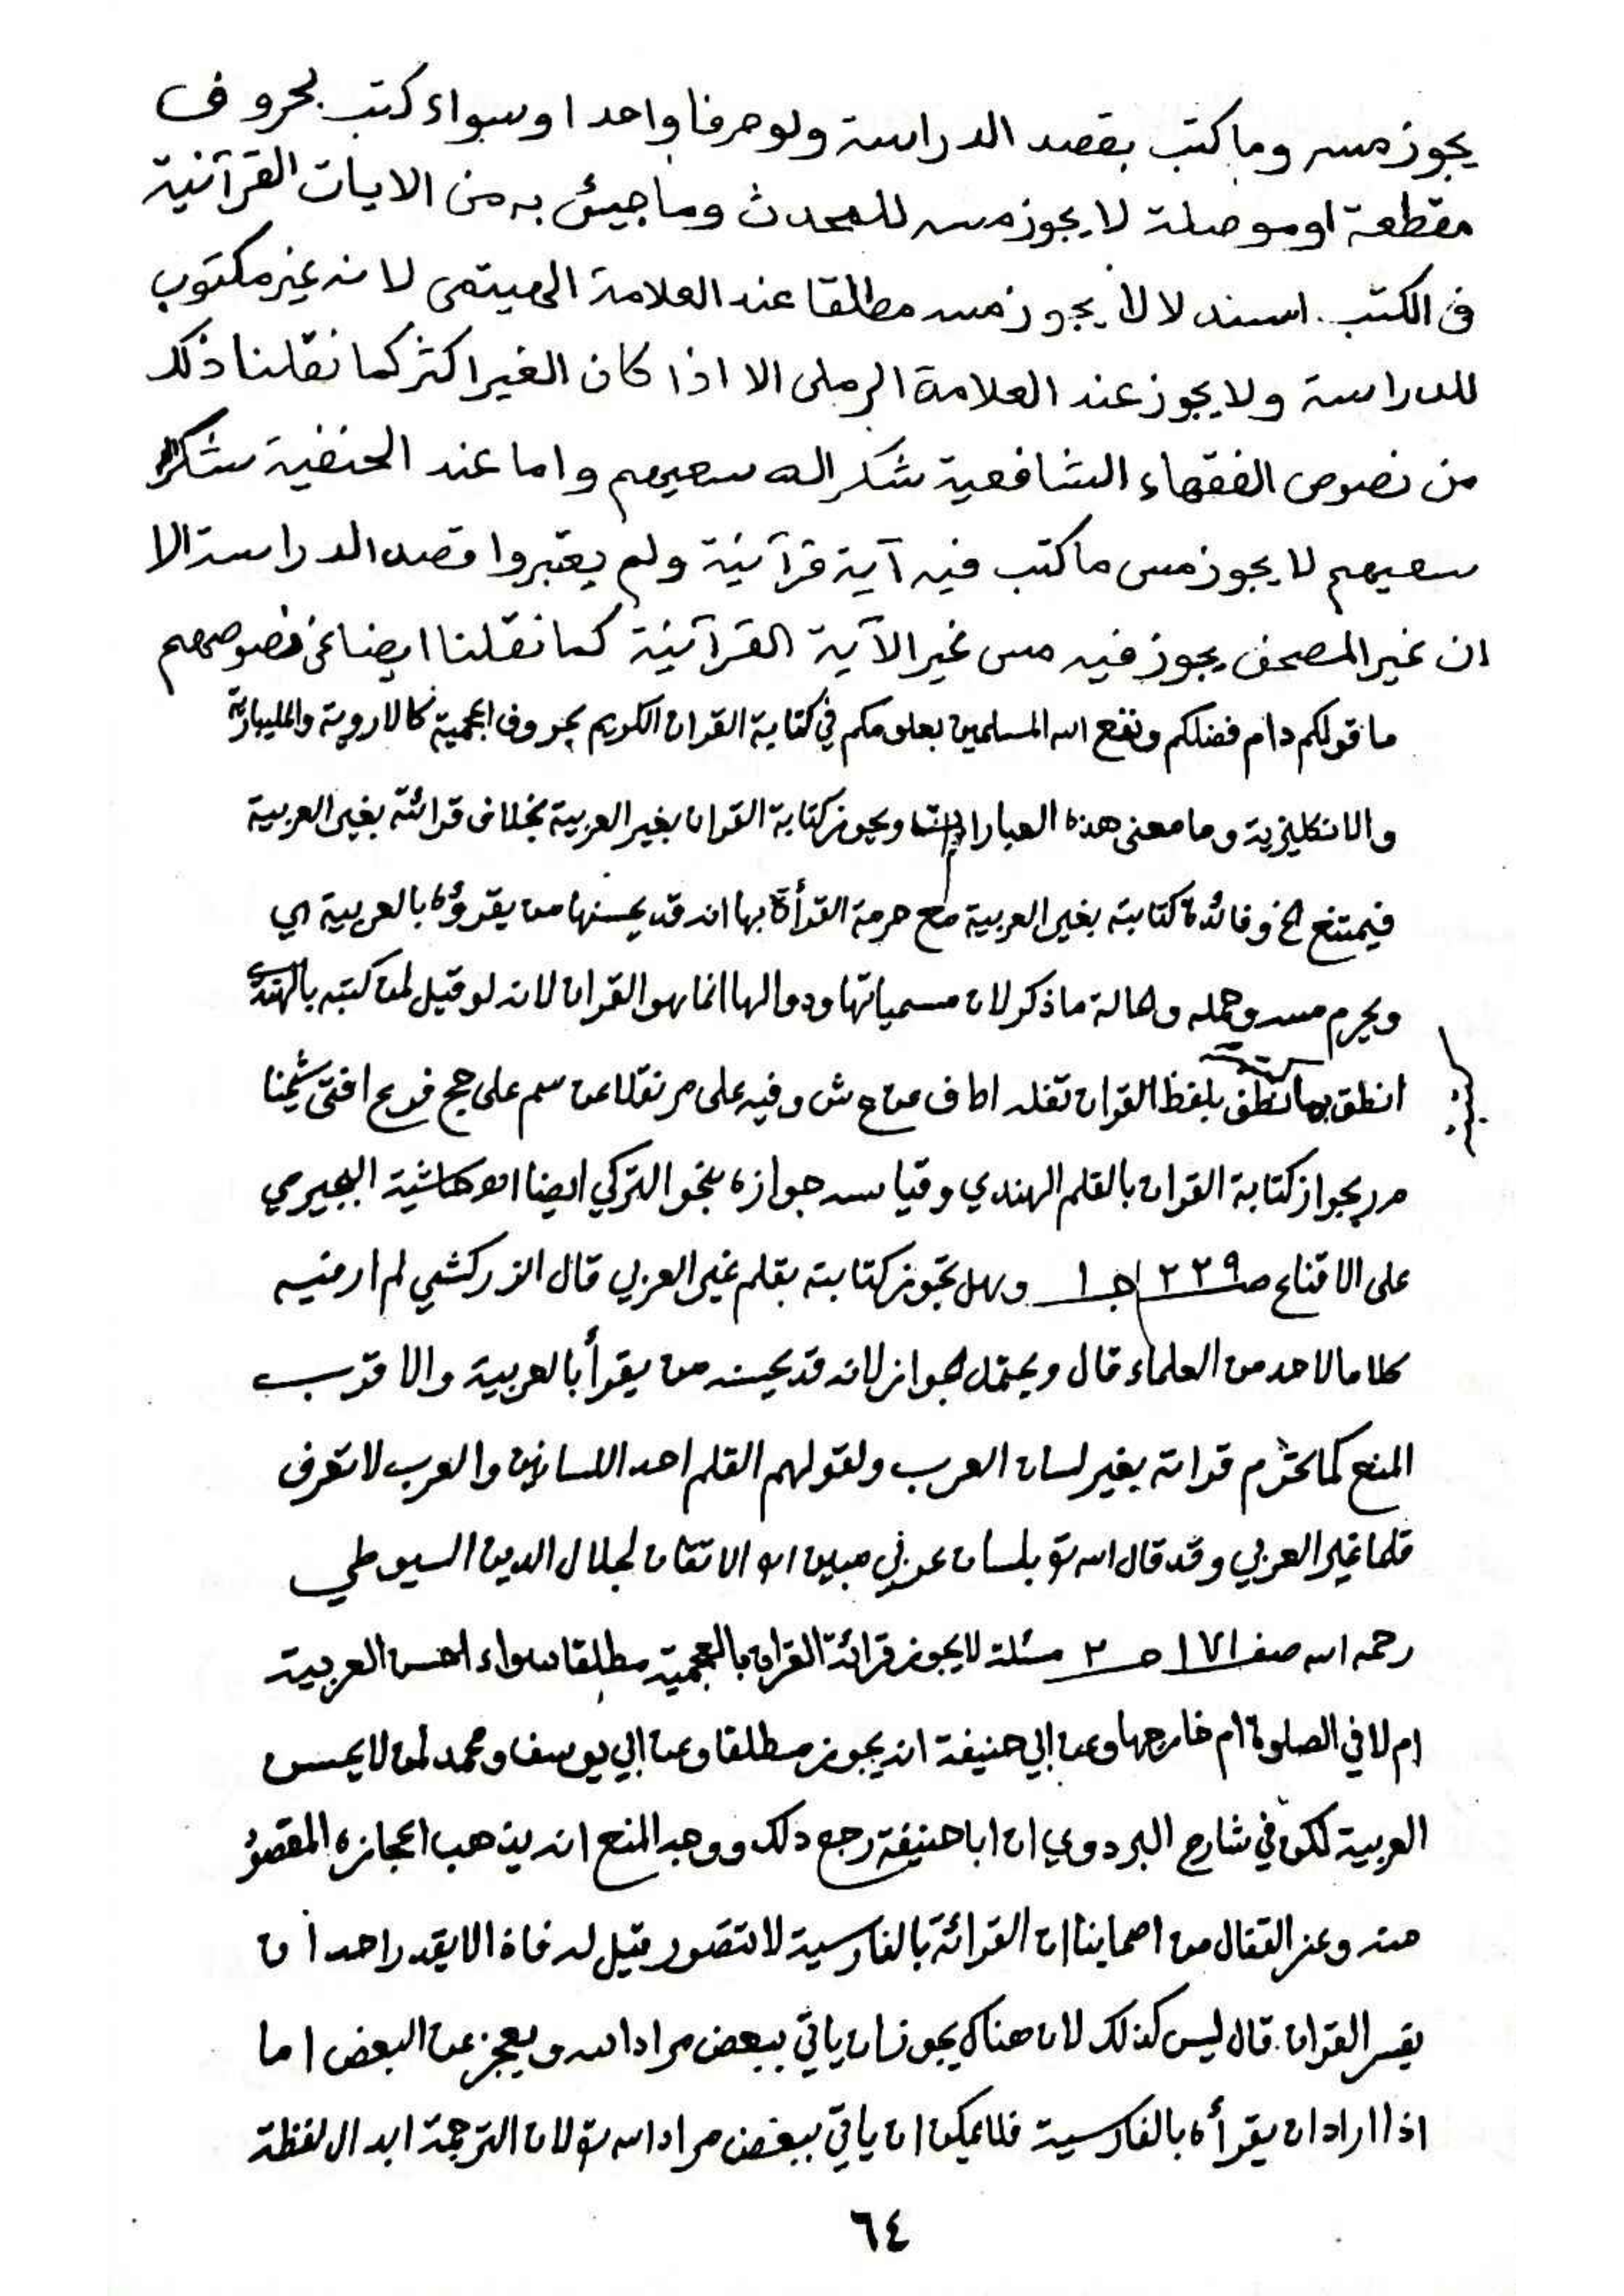 يجوز مسه وما كتب بقصد الدراسة ولو حرفا واحدا وسواء كتب بحروف
مقطعة او موصلة لا يجوز مسه للمحدث وما جيئ به من الايات القرآنية
فى الكتب استدلالا يجوز مسه مطلقا عند العلامة الهيتمى لانه غير مكتوب
للدراسة ولا يجوز عند العلامة الرملى الا اذا كان الغير اكثر كما نقلنا ذلك
من نصوص الفقهاء الشافعية شكر الله سعيهم واما عند الحنفية شكر
سعيهم لا يجوز مس ما كتب فيه آية قرآنية ولم يعتبروا قصد الدراسة الا
ان غير المصحف يجوز فيه مس غير الآية القرآنية كما نقلنا ايضا عن نصوصهم
ما قولكم دام فضلكم ونفع الله المسلمين بعلومكم في كتابة القران الكريم بحروف اعجمية كالاروية والمليبارية
والانكليزية وما معنى هذه العبارات ويجوز كتابة القران بغير العربية بخلاف قرائته بغير العربية
فيمتنع الخ وفائدة كتابته بغير العربية مع حرمة القرأة بها انه قد يحسنها من يقرؤه بالعربية اي
ويحرم مسه وحمله وحالة ما ذكر لان مسمياتها ودوالها انما هو القران لانه لو قيل لمن كتبه بالهندي
انطق بها نطق بلفظ القران نقله اط ف عن ع ش وفيه على مر نقلا عن سم على حج فرع افتى شيخنا
مر بجواز كتابة القران بالقلم الهندي وقياسه جوازه بنحو التركي ايضا اهـ حاشية البجيرمي
على الاقناع صـ ٢٣٩ جـ ١ وهل تجوز كتابته بقلم غير العربي قال الزركشي لم ار فيه
كلاما لاحد من العلماء قال ويحتمل الجواز لانه قد يحسنه من يقرأ بالعربية والاقرب
المنع كما تحرم قراته بغير لسان العرب ولقولهم القلم احد اللسانين والعرب لا تعرف
قلما غير العربي وقد قال الله تع بلسان عربي مبين اهـ الاتقان لجلال الدين السيوطي
رحمه الله صفـ ١٧١ جـ ٢ مسئلة لا يجوز قرائة القران بالعجمية مطلقا سواء احسن العربية
ام لا في الصلوة ام خارجها وعن ابي حنيفة انه يجوز مطلقا وعن ابي يوسف ومحمد لمن لا يحسن
العربية لكن في شارح البزدوي ان ابا حنيفة رجع ذلك ووجه المنع انه يذهب اعجازه المقصود
منه وعن القفال من اصحابنا ان القرائة بالفارسية لا تتصور قيل له فاذا لا يقدر احد ان
يفسر القران. قال ليس كذلك لان هناك يجوز ان ياتي ببعض مراد الله ويعجز عن البعض اما
اذا اراد ان يقرأه بالفارسية فلا يمكن ان ياتي ببعض مراد الله تع لان الترجمة ابدال لفظة
٦٤